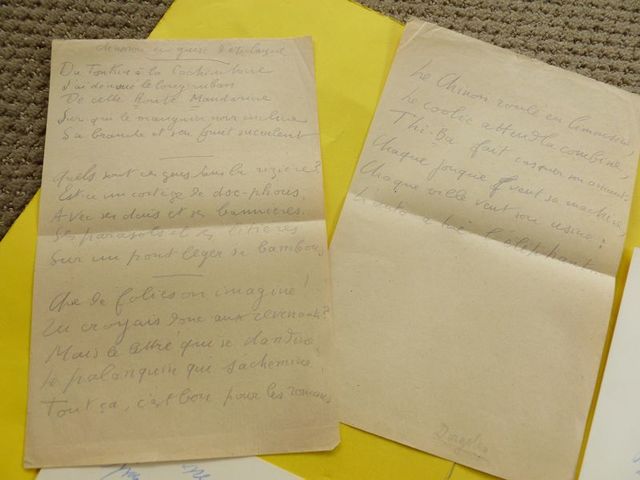 Chanson en guise d'épilogue
Du Tonkin à la Cochinchine
J'ai dénoué le long ruban
De cette Route Mandarine
Sur qui le manguier noir incline
Sa branche et son fruit succulent
Quels sont ces gens dans la rizière?
Est-ce un cortège de doc-phous,
Avec ses dais et ses bannières,
Ses parasols et ses litières
Sur un pont léger de bambou
Que de folies on imagine!
Tu croyais donc aux revenants?
Mais le lettré qui se dandine
Le palanquin qui s'achemine
Tout ça, c'est bon pour les romans
Le Chinois roule en limousine
Le coolie attend la combine,
Thi-Ba fait casquer son amant
Chaque jonque veut sa machine,
Chaque ville veut son usine:
Dorgelès